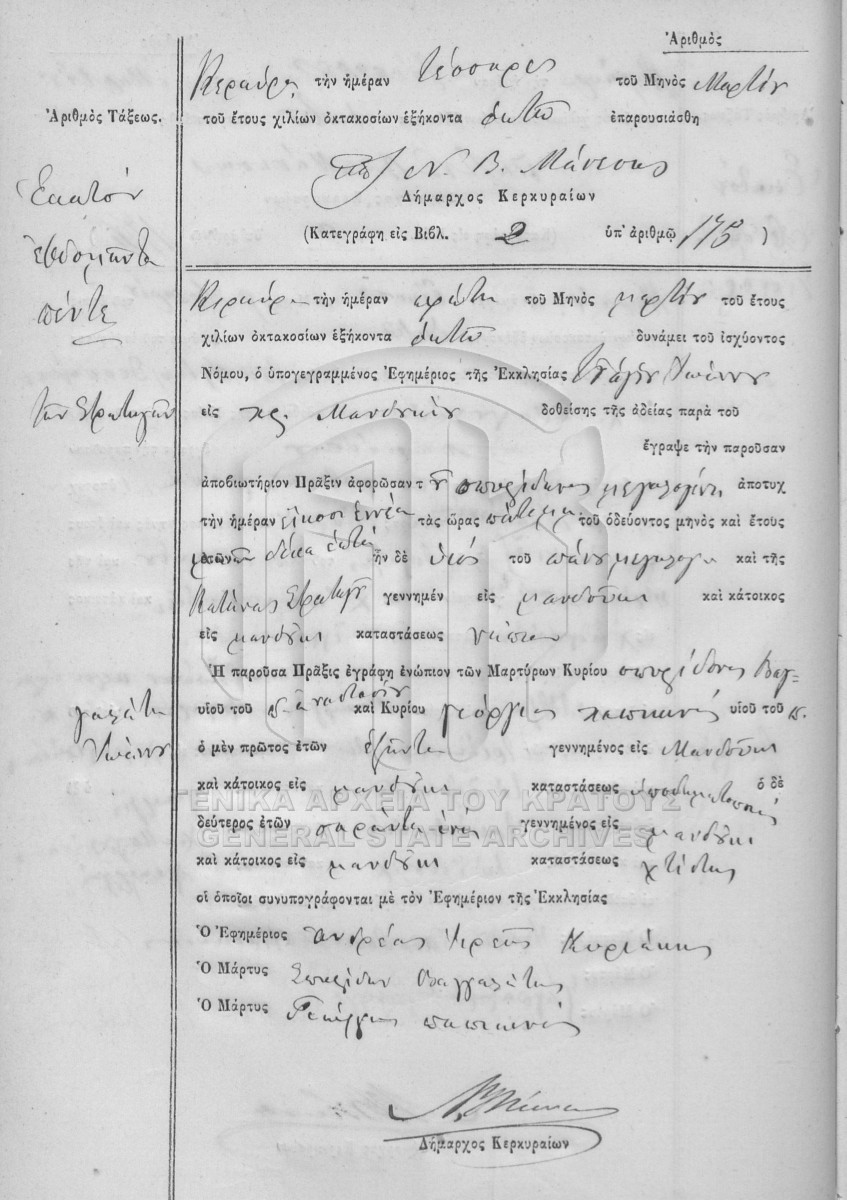 Ἀριθμὸς
Κερκύρᾳ τὴν ἡμέραν τέσσαρες τοῦ Μηνὸς Μαρτίου
Ἀριθμὸς Τάξεως.
τοῦ ἔτους χιλίων ὀκτακοσίων ἑξήκοντα ὀκτὼ ἐπαρουσιάσθη
Ν. Β. Μάνεσης
Δήμαρχος Κερκυραίων
(Κατεγράφη εἰς Βιβλ. 2 ὑπ' ἀριθμῷ 175 )
Ἑκατὸν
ἑβδομῆντα
πέντε
Κερκύρᾳ τὴν ἡμέραν πρώτη τοῦ Μηνὸς μαρτίου τοῦ ἔτους
χιλίων ὀκτακοσίων ἑξήκοντα ὀκτὼ δυνάμει τοῦ ἰσχύοντος
Νόμου, ὁ ὑπογεγραμμένος Ἐφημέριος τῆς Ἐκκλησίας Ἁγίου Ἰωάννου
τῶν Στρατηγῶν
εἰς Μανδουκίου δοθείσης τῆς ἀδείας παρὰ τοῦ
ἔγραψε τὴν παροῦσαν
ἀποβιωτήριον Πρᾶξιν ἀφορῶσαν τ σπυρίδωνος μεγαλογένη ἀποτυχ
τὴν ἡμέραν εἴκοσι ἐννέα τὰς ὥρας τοῦ ὁδεύοντος μηνὸς καὶ ἔτους
δέκα ἑπτὰ ἦν δὲ υἱὸς τοῦ σπύρου μεγαλογένη καὶ τῆς
Κατίνας Στρατηγοῦ γεννημέν εἰς μανδούκι καὶ κάτοικος
εἰς μανδούκι καταστάσεως νήπιον
Ἡ παροῦσα Πρᾶξις ἐγράφη ἐνώπιον τῶν Μαρτύρων Κυρίου σπυρίδωνος Βαγ-
γαλάτη
υἱοῦ τοῦ π. ἀναστασίου καὶ Κυρίου γεώργιος παπικινὸς υἱοῦ τοῦ π.
Ἰωάννου
ὁ μὲν πρῶτος ἐτῶν ἑξῆντα γεννημένος εἰς Μανδούκι
καὶ κάτοικος εἰς μανδούκι καταστάσεως ὑποδηματοποιὸς ὁ δὲ
ΓΕΝΙΚΑ ΑΡΧΕΙΑ ΤΟΥ ΚΡΑΤΟΥΣ
δεύτερος ἐτῶν σαράντα ἑνὸς γεννημένος εἰς μανδούκι
GENERAL STATE ARCHIVES
καὶ κάτοικος εἰς μανδούκι καταστάσεως χτίστης
οἱ ὁποῖοι συνυπογράφονται μὲ τὸν Ἐφημέριον τῆς Ἐκκλησίας
Ὁ Ἐφημέριος Ἀνδρέας Ἱερεὺς Κυριάκης
Ὁ Μάρτυς Σπυρίδων Βαγγαλάτης
Ὁ Μάρτυς Γεώργιος παπικινὸς
Δήμαρχος Κερκυραίων